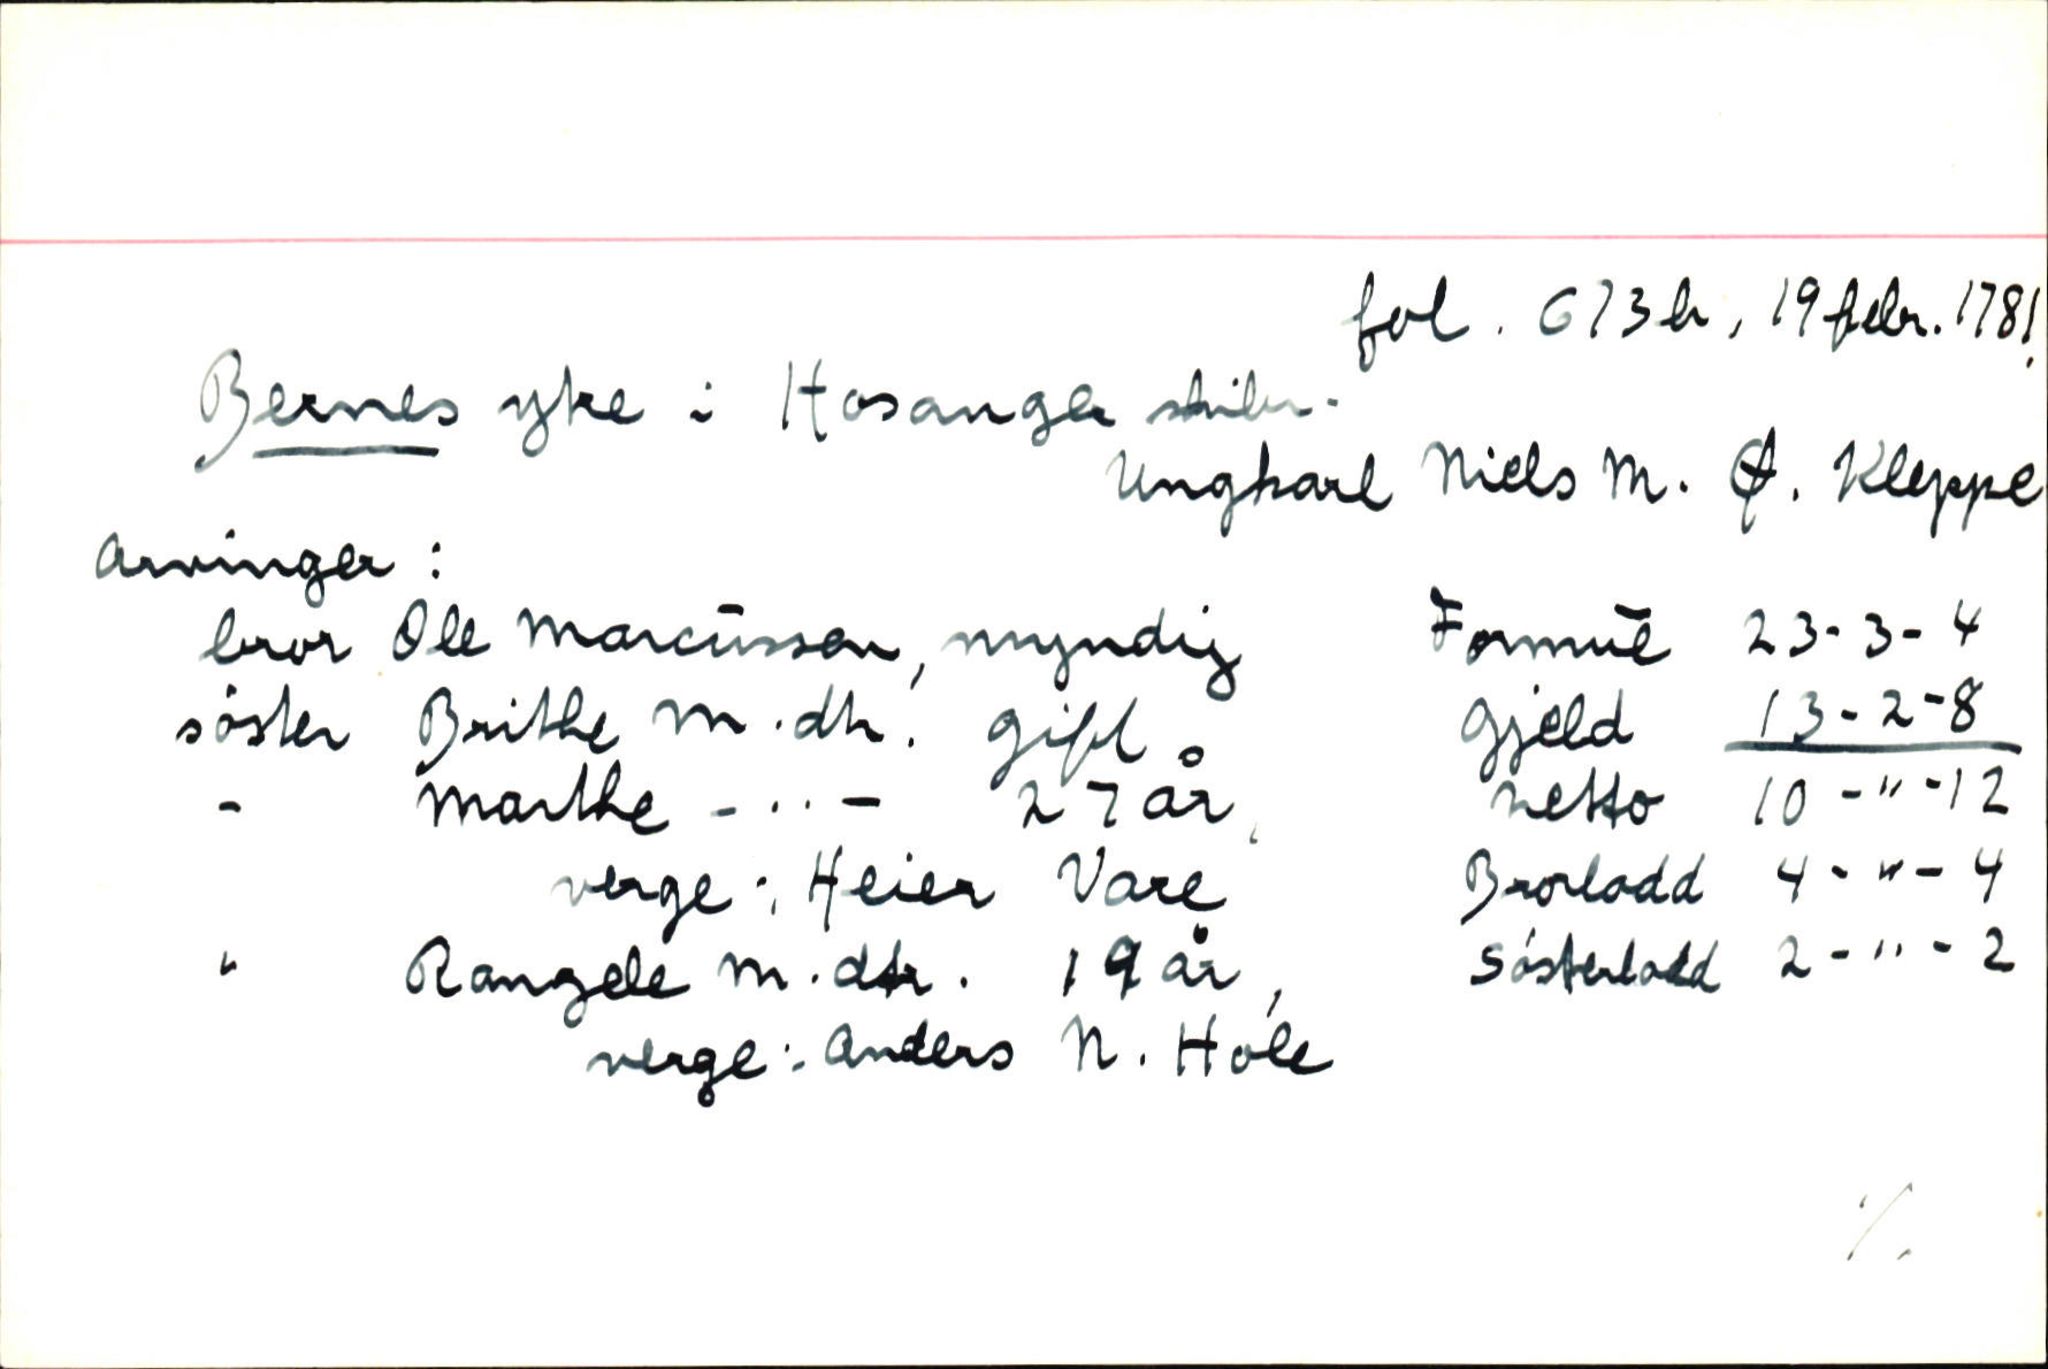 fol. 673b, 19 febr. 1781.
Bernes ytre i Hosanger skibr.
Ungkarl Niels M. Ø. Kleppe
Arvinger:
bror Ole Marcussen, myndig Formue 23-3-4
söster Brithe M.dtr. gift Gjeld 13-2-8
- Marthe -"- 27 år, netto 10-"-12
verge: Heier Vare Brorlodd 4-"-4
" Rangele M.dtr. 19 år, Sösterlodd 2-"-2
verge: Anders N. Hole
./.